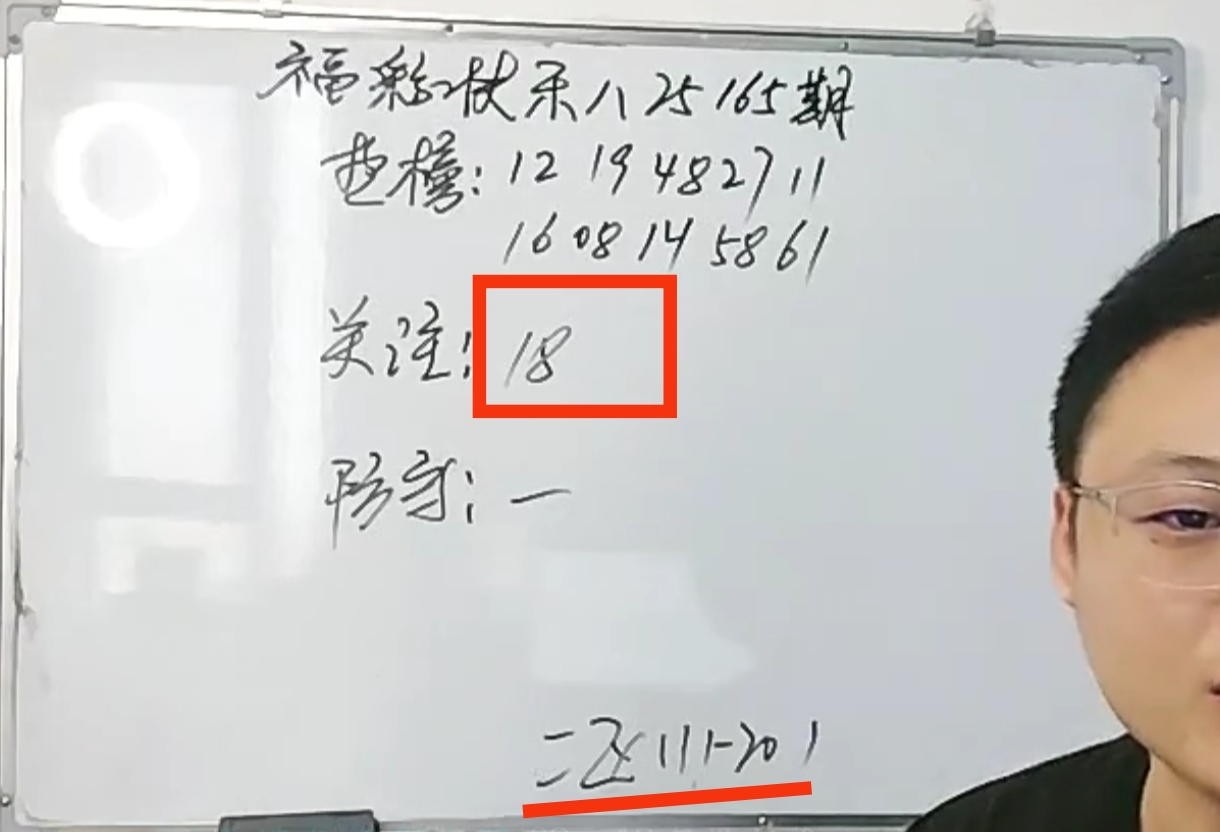 福彩快乐八25165期
选横: 12 19 48 27 11
16 08 14 58 61
关注: 18
防守: 一
二区 111-201